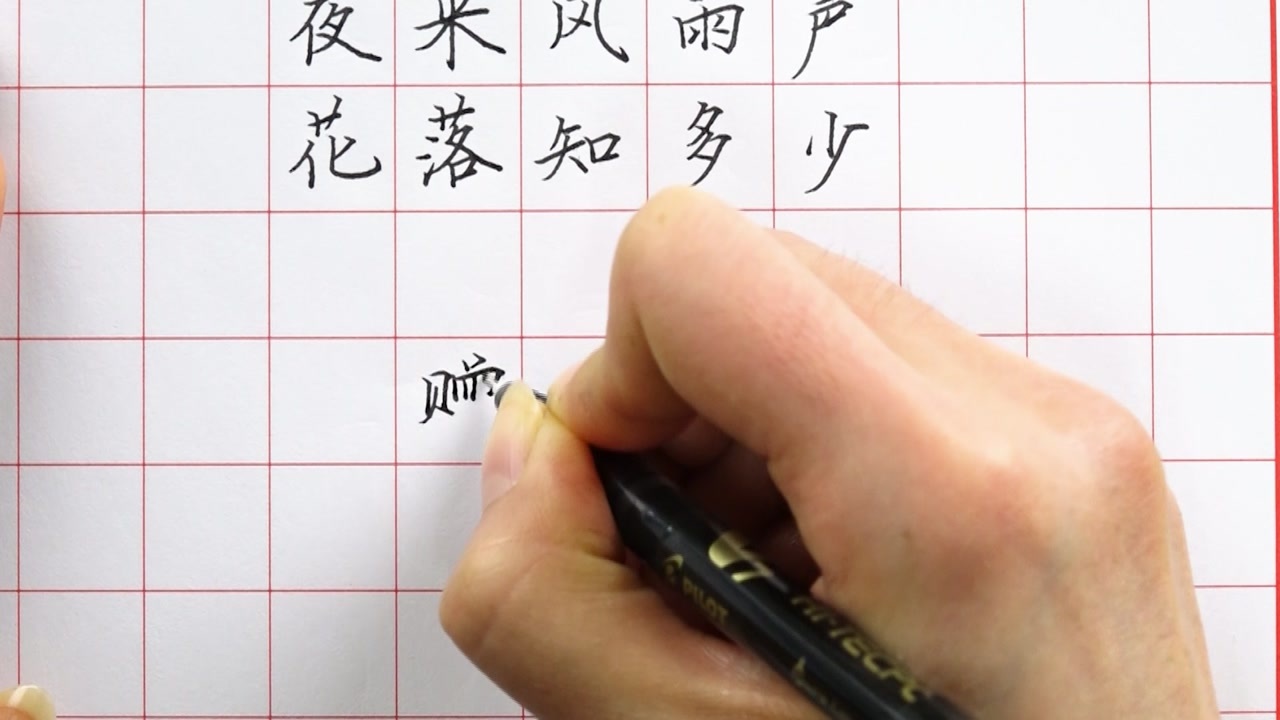 夜来风雨声
花落知多少
PILOT
HI-TECPC